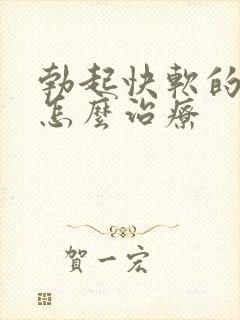 勃起快軟的
怎麼治療
賀一宏